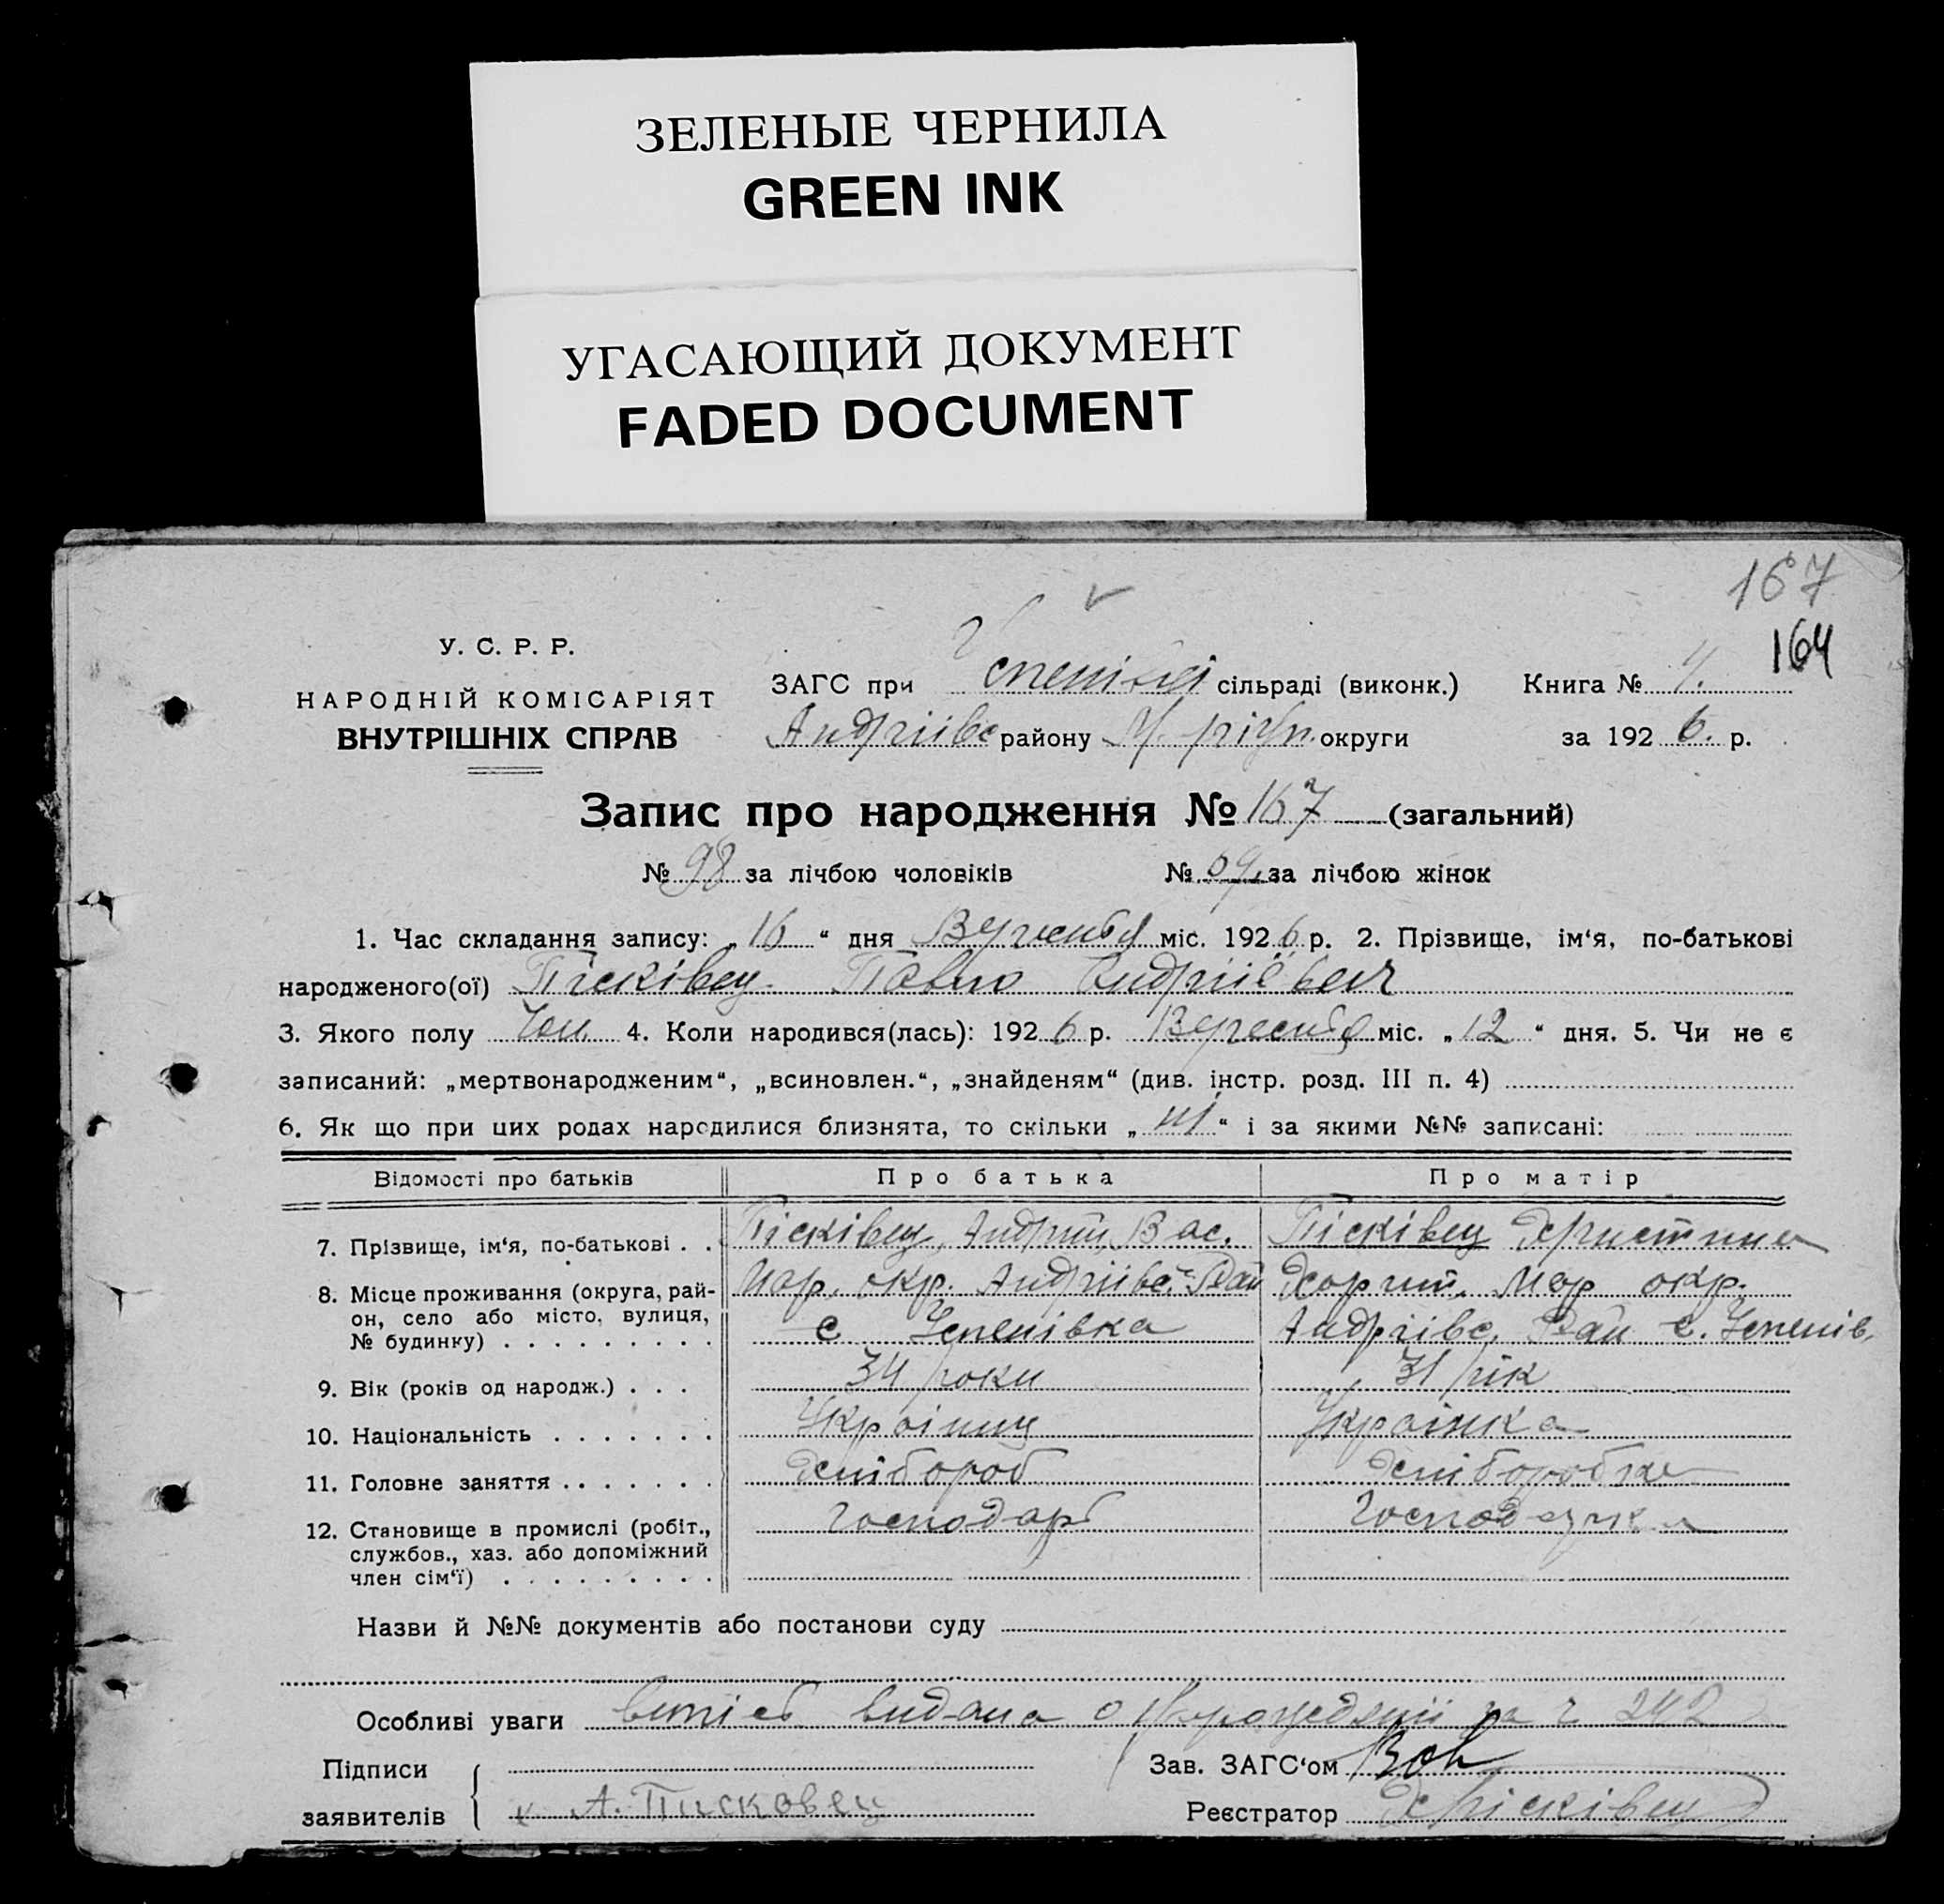 ЗЕЛЕНЫЕ ЧЕРНИЛА
GREEN INK
УГАСАЮЩИЙ ДОКУМЕНТ
FADED DOCUMENT
167
164
У. С. Р. Р.
НАРОДНІЙ КОМІСАРІЯТ
ВНУТРІШНІХ СПРАВ
ЗАГС при Успенівсці сільраді (виконк.) Книга № 4.
Андріївс району М. ріуп. округи за 1926. р.
Запис про народження № 167 (загальний)
№ 98 за лічбою чоловіків № 69 за лічбою жінок
1. Час складання запису: „16“ дня Вересня міс. 1926 р. 2. Прізвище, ім‘я, по-батькові
народженого(ої) Пісківец Павло Андріївич
3. Якого полу Чол. 4. Коли народився(лась): 1926 р. Вересня міс. „12“ дня. 5. Чи не є
записаний: „мертвонародженим“, „всиновлен.“, „знайденям“ (див. інстр. розд. III п. 4)
6. Як що при цих родах народилися близнята, то скільки „ні“ і за якими №№ записані:
Відомості про батьків Про батька Про матір
7. Прізвище, ім‘я, по-батькові . . Пісківец, Андрій, Вас. Пісківец Христина
8. Місце проживання (округа, рай- Мар. окр. Андріівс. Рай Мар окр.
он, село або місто, вулиця, с Успенівка Андріівс. Рай с. Успенів.
№ будинку) . . . . . . . . .
9. Вік (років од народж.) . . . 34 роки 31 рік
10. Національність . . . . . . . Українец Українка
11. Головне заняття . . . . . . . Хлібороб Хліборобка
12. Становище в промислі (робіт., Господарь Господарка
службов., хаз. або допоміжний
член сім‘ї) . . . . . . . . .
Назви й №№ документів або постанови суду
Особливі уваги витісь видана о нарожденіі за ч 242
Підписи Зав. ЗАГС‘ом
заявителів А. Писковец Реєстратор Пісківец